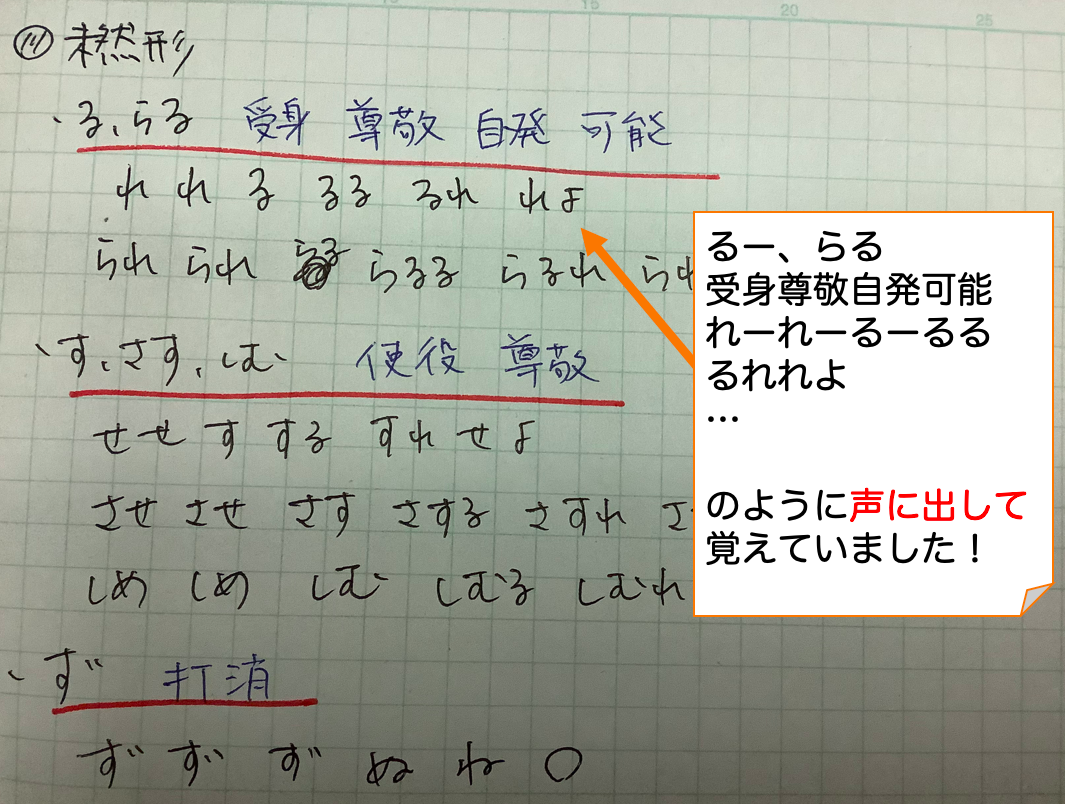 10 15 20 25
⑪ 未然形
・る、らる 受身 尊敬 自発 可能
れ れ る るる るれ れよ
られ られ らる らるる らるれ られ
・す、さす、しむ 使役 尊敬
せ せ す する すれ せよ
させ させ さす さする さすれ さ
しめ しめ しむ しむる しむれ
・ず 打消
ず ず ず ぬ ね ○
るー、らる
受身尊敬自発可能
れーれーるーるる
るれれよ
…
のように声に出して
覚えていました！